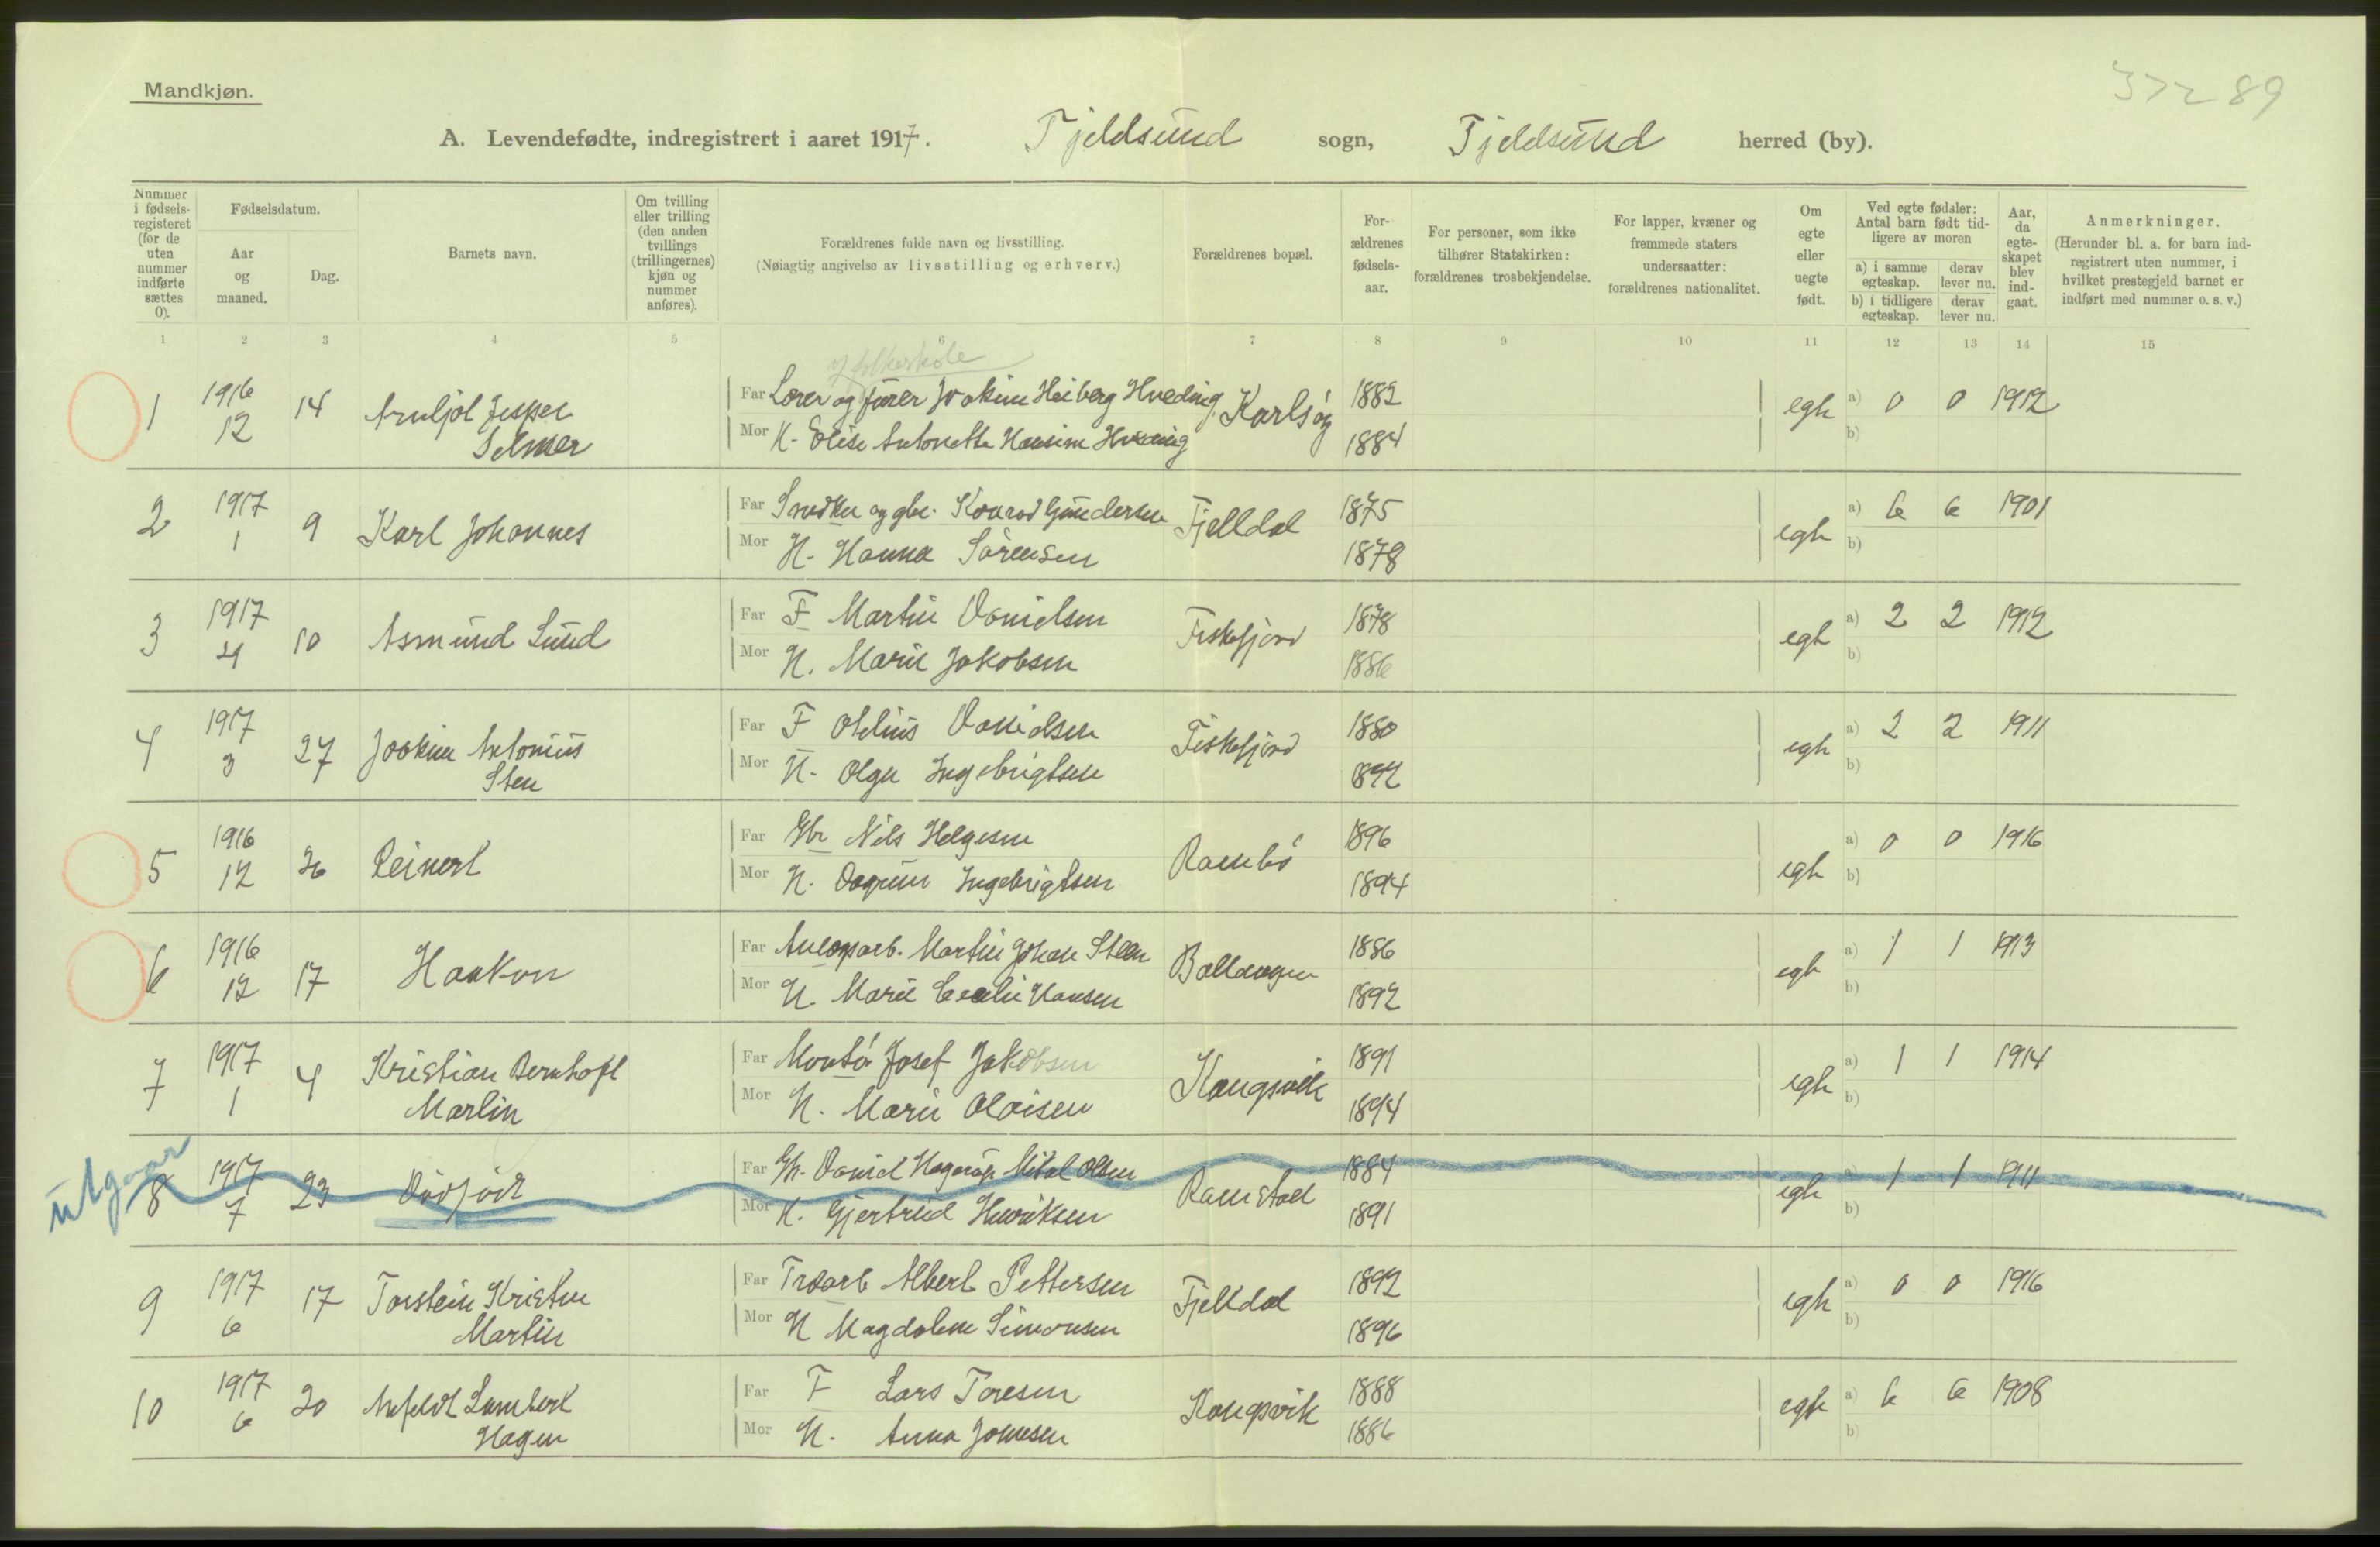 Mandkjøn.
37289
A. Levendefødte, indregistrert i aaret 1917. Tjeldsund sogn, Tjeldsund herred (by).
Nummer i fødsels-registeret (for de uten nummer indførte sættes 0).
Fødselsdatum.
Aar og maaned.
Dag.
Barnets navn.
Om tvilling eller trilling (den anden tvillings (trillingernes) kjøn og nummer anføres).
Forældrenes fulde navn og livsstilling. (Nøiagtig angivelse av livsstilling og erhverv.)
Forældrenes bopæl.
For-ældrenes fødsels-aar.
For personer, som ikke tilhører Statskirken: forældrenes trosbekjendelse.
For lapper, kvæner og fremmede staters undersaatter: forældrenes nationalitet.
Om egte eller uegte født.
Ved egte fødsler: Antal barn født tid-ligere av moren
a) i samme egteskap. derav lever nu.
b) i tidligere egteskap. derav lever nu.
Aar, da egte-skapet blev ind-gaat.
Anmerkninger. (Herunder bl. a. for barn ind-registrert uten nummer, i hvilket prestegjeld barnet er indført med nummer o. s. v.)
1 2 3 4 5 6 7 8 9 10 11 12 13 14 15
folkeskole
1 1916 12 14 Arnljot Jesper Selmer
Far Lærer og fører Joakim Heiberg Hveding Karlsøy 1882
Mor H. Elise Antonette Hansine Hveding 1884
egte a) 0 0 1912
b)
2 1917 1 9 Karl Johannes
Far Snedker og gbr. Konrad Gundersen Fjelldal 1875
Mor H. Hanna Sørensen 1878
egte a) 6 6 1901
b)
3 1917 4 10 Asmund Sund
Far F Martin Danielsen Fiskefjord 1878
Mor H. Marie Jakobsen 1886
egte a) 2 2 1912
b)
4 1917 3 27 Joakim Antonius Sten
Far F Otelius Danielsen Fiskefjord 1880
Mor H. Olga Ingebrigtsen 1892
egte a) 2 2 1911
b)
5 1916 12 26 Reinert
Far Gbr Nils Helgesen Rambø 1896
Mor H. Dagrun Ingebrigtsen 1894
egte a) 0 0 1916
b)
6 1916 12 17 Haakon
Far Anlægsarb. Martin Johan Steen Ballangen 1886
Mor H. Marie Cecilie Hansen 1892
egte a) 1 1 1913
b)
7 1917 1 4 Kristian Bernhoft Martin
Far Montør Josef Jakobsen Kongsvik 1891
Mor H. Marie Olaisen 1894
egte a) 1 1 1914
b)
utgaar
8 1917 7 23 Dødfødt
Far Gbr. Daniel Hagerup Mikal Olsen Ramstad 1884
Mor H. Gjertrud Henriksen 1891
egte a) 1 1 1911
b)
9 1917 6 17 Torstein Kristen Martin
Far Albert Pettersen Fjelldal 1892
Mor H Magdalene Simonsen 1896
egte a) 0 0 1916
b)
10 1917 6 20 Lambert Hagen
Far F Lars Toresen Kongsvik 1888
Mor H. Anna Johnesen 1886
egte a) 6 6 1908
b)